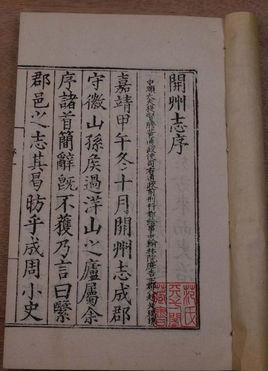 開州志序
嘉靖甲午冬十月開州志成郡
守微山孫侯過洋山之廬屬余
序諸首簡辭旣不獲乃言曰繄
郡邑之志其昉乎成周小史
范氏天一閣藏書